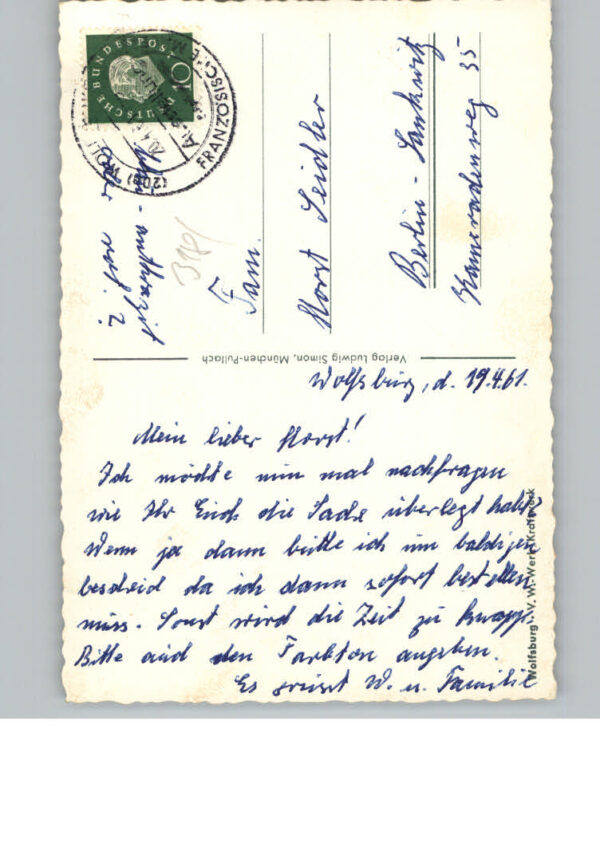 Wolfsburg, d. 19.4.61.
Mein lieber Horst!
Ich möchte nun mal nachfragen
wie Ihr Euch die Sache überlegt habt.
Wenn ja dann bitte ich um baldigen
bescheid da ich dann sofort bestellen
muss. Sonst wird die Zeit zu knapp.
Bitte auch den Farbton angeben.
Es grüsst W. u. Familie
Fam.
Horst Seidler
Berlin - Lankwitz
Kameradenweg 35
anthrazit
oder rot?
318/
Verlag Ludwig Simon, München-Pullach
Wolfsburg · V. W.-Werk, Kraftwerk
DEUTSCHE BUNDESPOST
10
(20b)
20.4.61
FRANZÖSISCHE